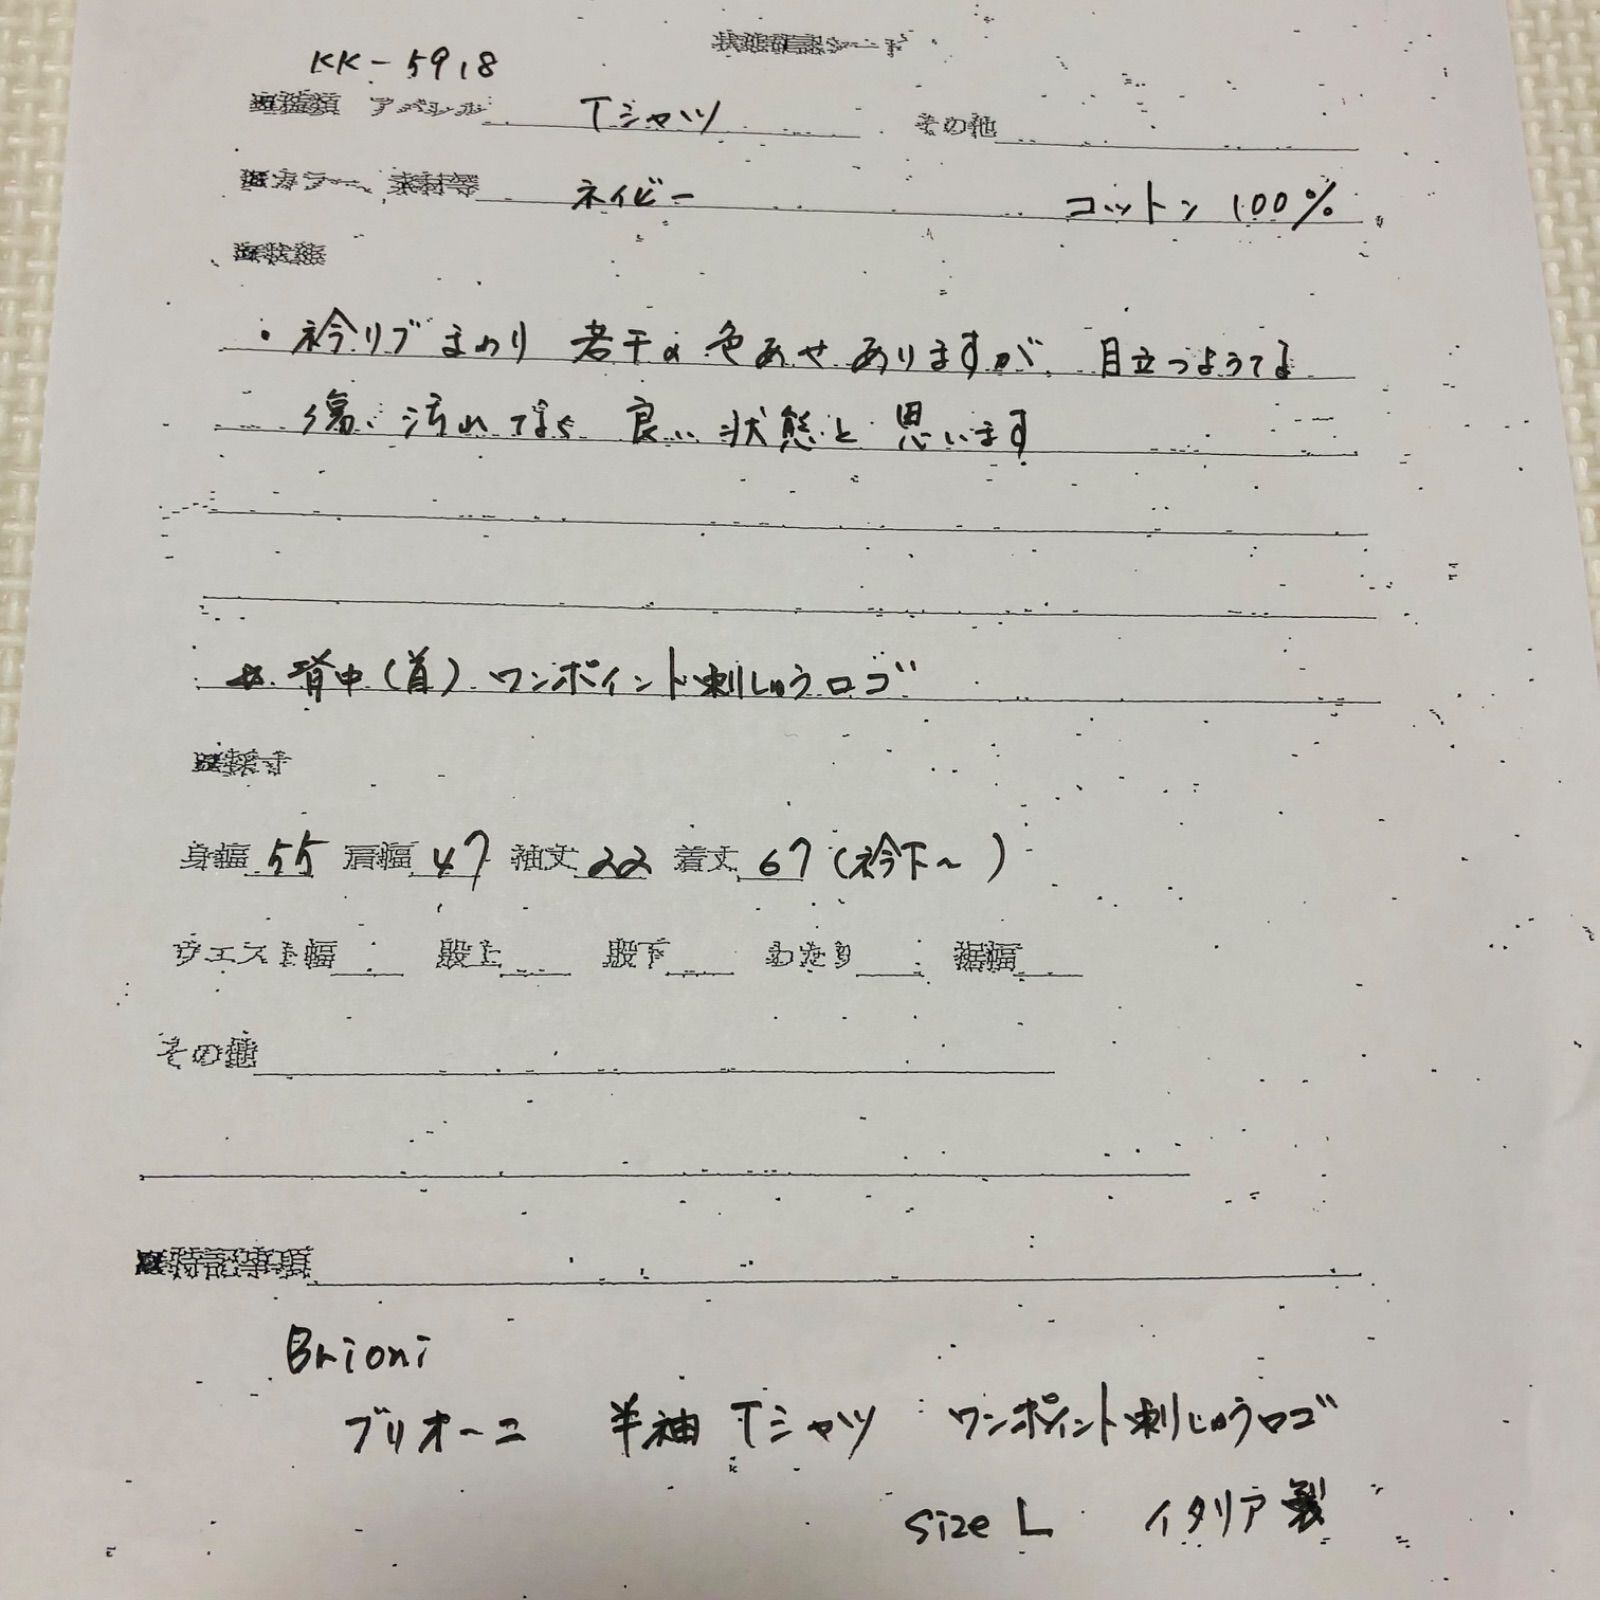 状態確認シート
KK-5918
■種類 アパレル Tシャツ その他
■カラー、素材等 ネイビー コットン 100%
■状態
・衿リブまわり 若干の色あせありますが、目立つような
傷、汚れなく 良い状態と思います
*背中(首)ワンポイント刺しゅうロゴ
■採寸
身幅 55 肩幅 47 袖丈 22 着丈 67 (衿下~)
ウエスト幅 股上 股下 わたり 裾幅
その他
■特記事項
Brioni
ブリオーニ 半袖 Tシャツ ワンポイント刺しゅうロゴ
size L イタリア製